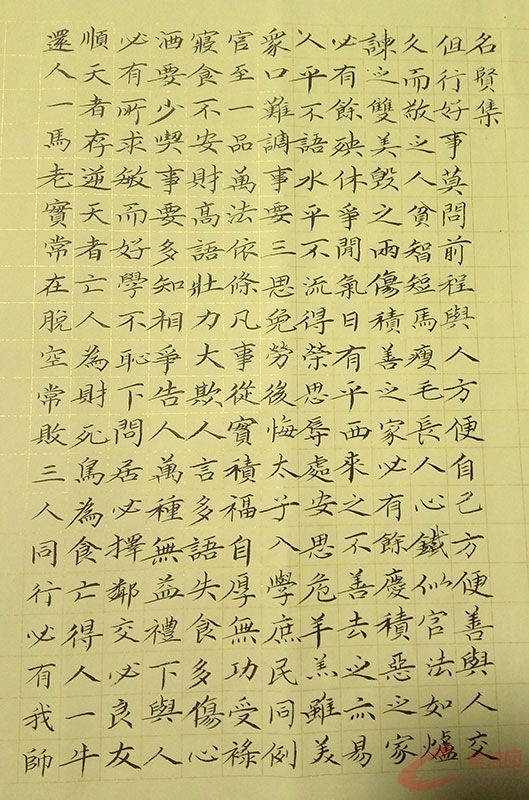 名賢集
但行好事莫問前程與人方便自己方便善與人交
久而敬之人貧智短馬瘦毛長人心鐵似官法如爐
諫之雙美毀之兩傷積善之家必有餘慶積惡之家
必有餘殃休爭閒氣日有平西來之不善去之亦易
人平不語水平不流得榮思辱處安思危羊羔雖美
眾口難調事要三思免勞後悔太子入學庶民同例
官至一品萬法依條凡事從實積福自厚無功受祿
寢食不安財高語壯力大欺人言多語失食多傷心
酒要少喫事要多知相爭告人萬種無益禮下與人
必有所求敏而好學不恥下問居必擇鄰交必良友
順天者存逆天者亡人為財死鳥為食亡得人一牛
還人一馬老實常在脫空常敗三人同行必有我師